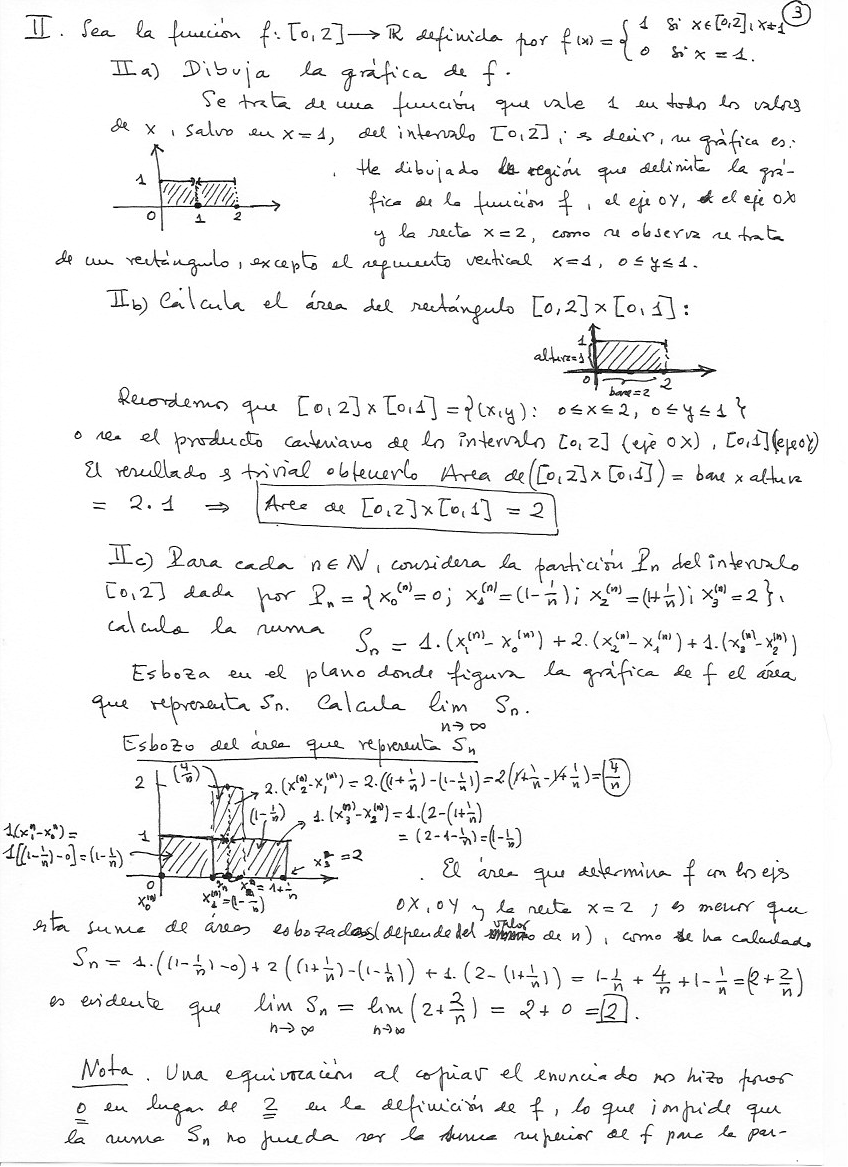 3
II. Sea la función f: [0,2] → R definida por f(x) = { 1 si x∈[0,2], x≠1
0 si x = 1.
IIa) Dibuja la gráfica de f.
Se trata de una función que vale 1 en todos los valores
de x, salvo en x=1, del intervalo [0,2], es decir, su gráfica es:
1
0 1 2
He dibujado la región que delimita la grá-
fica de la función f, el eje OY, el eje OX
y la recta x=2, como se observa se trata
de un rectángulo, excepto el segmento vertical x=1, 0≤y≤1.
IIb) Cálcula el área del rectángulo [0,2]×[0,1]:
1
altura=1
0 base=2 2
Recordemos que [0,2]×[0,1] = {(x,y): 0≤x≤2, 0≤y≤1}
o sea el producto cartesiano de los intervalos [0,2] (eje OX), [0,1] (eje OY)
El resultado es trivial obtenerlo Area de ([0,2]×[0,1]) = base x altura
= 2·1 ⇒ Area de [0,2]×[0,1] = 2
IIc) Para cada n∈N, considera la partición Pn del intervalo
[0,2] dada por Pn = {x0^(n)=0; x1^(n)=(1-1/n); x2^(n)=(1+1/n); x3^(n)=2},
calcula la suma Sn = 1·(x1^(n)-x0^(n)) + 2·(x2^(n)-x1^(n)) + 1·(x3^(n)-x2^(n))
Esboza en el plano donde figura la gráfica de f el área
que representa Sn. Calcula lim Sn.
n→∞
Esbozo del área que representa Sn
2 (4/n) 2·(x2^(n)-x1^(n)) = 2·((1+1/n)-(1-1/n)) = 2(1+1/n-1+1/n) = 4/n
1 (1-1/n) 1·(x3^(n)-x2^(n)) = 1·(2-(1+1/n)
= (2-1-1/n) = (1-1/n)
1(x1^n-x0^n) =
1[(1-1/n)-0] = (1-1/n)
x3^n = 2
0 x0^(n) x1^(n)=(1-1/n) x2^n = 1+1/n
. El área que determina f con los ejes
OX, OY y la recta x=2; es menor que
esta suma de áreas esbozadas (depende del valor de n), como se ha calculado
Sn = 1·((1-1/n)-0) + 2((1+1/n)-(1-1/n)) + 1·(2-(1+1/n)) = 1-1/n + 4/n + 1-1/n = (2+2/n)
es evidente que lim Sn = lim (2+2/n) = 2+0 = 2.
n→∞ n→∞
Nota. Una equivocación al copiar el enunciado nos hizo poner
0 en lugar de 2 en la definición de f, lo que impide que
la suma Sn no pueda ser la suma superior de f para la par-